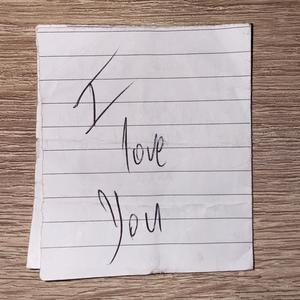 I
love
You